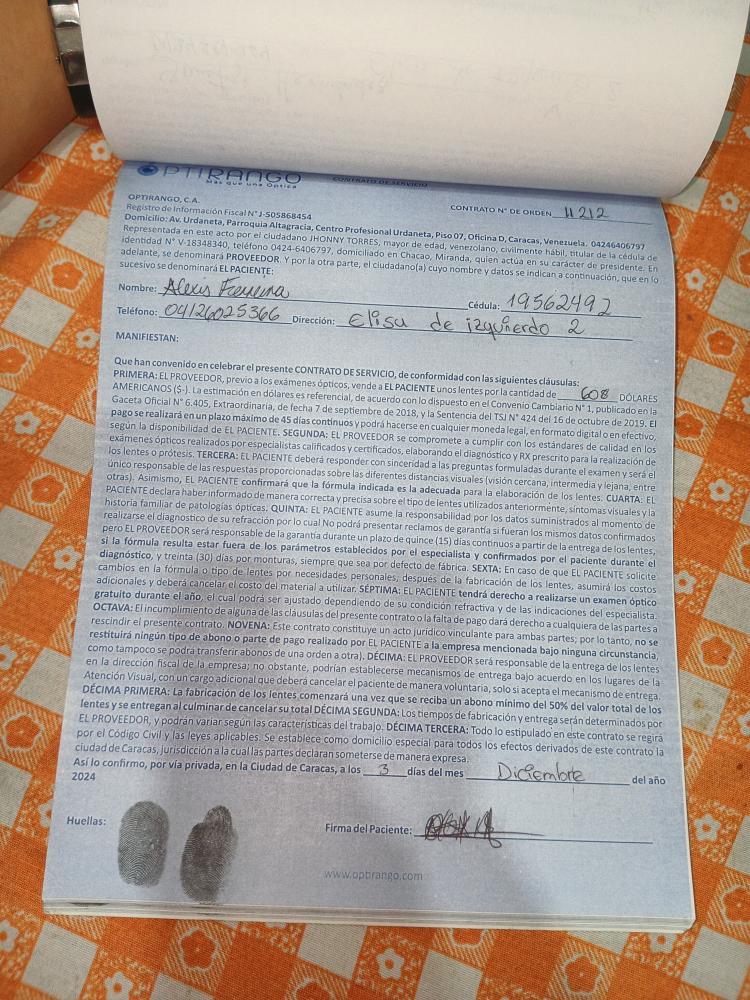 OPTIRANGO
Más que una Óptica
CONTRATO DE SERVICIO
OPTIRANGO, C.A.
CONTRATO N° DE ORDEN 11212
Registro de Información Fiscal N° J-505868454
Domicilio: Av. Urdaneta, Parroquia Altagracia, Centro Profesional Urdaneta, Piso 07, Oficina D, Caracas, Venezuela. 04246406797
Representada en este acto por el ciudadano JHONNY TORRES, mayor de edad, venezolano, civilmente hábil, titular de la cédula de
identidad N° V-18348340, teléfono 0424-6406797, domiciliado en Chacao, Miranda, quien actúa en su carácter de presidente. En
adelante, se denominará PROVEEDOR. Y por la otra parte, el ciudadano(a) cuyo nombre y datos se indican a continuación, que en lo
sucesivo se denominará EL PACIENTE:
Nombre: Alexis Ferreira Cédula: 19562492
Teléfono: 04126025366 Dirección: Elisa de izquierdo 2
MANIFIESTAN:
Que han convenido en celebrar el presente CONTRATO DE SERVICIO, de conformidad con las siguientes cláusulas:
PRIMERA: EL PROVEEDOR, previo a los exámenes ópticos, vende a EL PACIENTE unos lentes por la cantidad de 608 DÓLARES
AMERICANOS ($-). La estimación en dólares es referencial, de acuerdo con lo dispuesto en el Convenio Cambiario N° 1, publicado en la
Gaceta Oficial N° 6.405, Extraordinaria, de fecha 7 de septiembre de 2018, y la Sentencia del TSJ N° 424 del 16 de octubre de 2019. El
pago se realizará en un plazo máximo de 45 días continuos y podrá hacerse en cualquier moneda legal, en formato digital o en efectivo,
según la disponibilidad de EL PACIENTE. SEGUNDA: EL PROVEEDOR se compromete a cumplir con los estándares de calidad en los
exámenes ópticos realizados por especialistas calificados y certificados, elaborando el diagnóstico y RX prescrito para la realización de
los lentes o prótesis. TERCERA: EL PACIENTE deberá responder con sinceridad a las preguntas formuladas durante el examen y será el
único responsable de las respuestas proporcionadas sobre las diferentes distancias visuales (visión cercana, intermedia y lejana, entre
otras). Asimismo, EL PACIENTE confirmará que la fórmula indicada es la adecuada para la elaboración de los lentes. CUARTA: EL
PACIENTE declara haber informado de manera correcta y precisa sobre el tipo de lentes utilizados anteriormente, síntomas visuales y la
historia familiar de patologías ópticas. QUINTA: EL PACIENTE asume la responsabilidad por los datos suministrados al momento de
realizarse el diagnostico de su refracción por lo cual No podrá presentar reclamos de garantía si fueran los mismos datos confirmados
pero EL PROVEEDOR será responsable de la garantía durante un plazo de quince (15) días continuos a partir de la entrega de los lentes,
si la fórmula resulta estar fuera de los parámetros establecidos por el especialista y confirmados por el paciente durante el
diagnóstico, y treinta (30) días por monturas, siempre que sea por defecto de fábrica. SEXTA: En caso de que EL PACIENTE solicite
cambios en la fórmula o tipo de lentes por necesidades personales, después de la fabricación de los lentes, asumirá los costos
adicionales y deberá cancelar el costo del material a utilizar. SÉPTIMA: EL PACIENTE tendrá derecho a realizarse un examen óptico
gratuito durante el año, el cual podrá ser ajustado dependiendo de su condición refractiva y de las indicaciones del especialista.
OCTAVA: El incumplimiento de alguna de las cláusulas del presente contrato o la falta de pago dará derecho a cualquiera de las partes a
rescindir el presente contrato. NOVENA: Este contrato constituye un acto jurídico vinculante para ambas partes; por lo tanto, no se
restituirá ningún tipo de abono o parte de pago realizado por EL PACIENTE a la empresa mencionada bajo ninguna circunstancia,
como tampoco se podrá transferir abonos de una orden a otra). DÉCIMA: EL PROVEEDOR será responsable de la entrega de los lentes
en la dirección fiscal de la empresa; no obstante, podrían establecerse mecanismos de entrega bajo acuerdo en los lugares de la
Atención Visual, con un cargo adicional que deberá cancelar el paciente de manera voluntaria, solo si acepta el mecanismo de entrega.
DÉCIMA PRIMERA: La fabricación de los lentes comenzará una vez que se reciba un abono mínimo del 50% del valor total de los
lentes y se entregan al culminar de cancelar su total DÉCIMA SEGUNDA: Los tiempos de fabricación y entrega serán determinados por
EL PROVEEDOR, y podrán variar según las características del trabajo. DÉCIMA TERCERA: Todo lo estipulado en este contrato se regirá
por el Código Civil y las leyes aplicables. Se establece como domicilio especial para todos los efectos derivados de este contrato la
ciudad de Caracas, jurisdicción a la cual las partes declaran someterse de manera expresa.
Así lo confirmo, por vía privada, en la Ciudad de Caracas, a los 3 días del mes Diciembre del año
2024
Huellas:
Firma del Paciente:
www.optirango.com